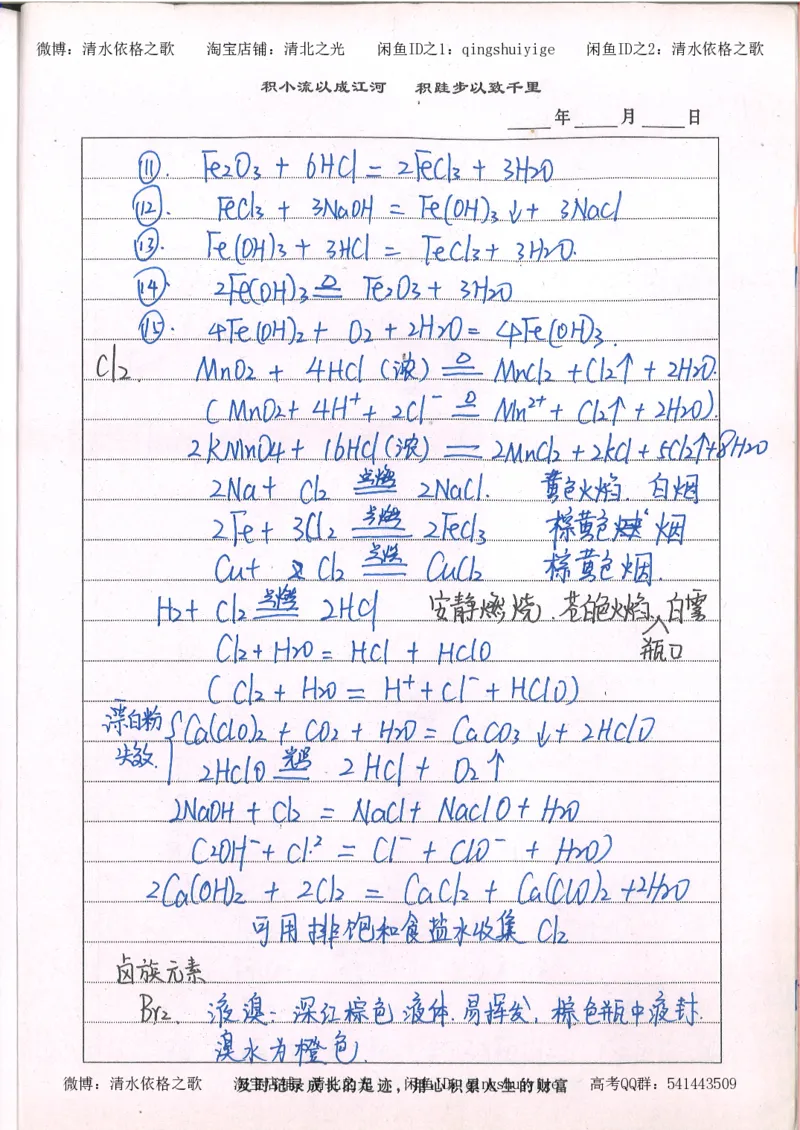 微博：清水依格之歌 淘宝店铺：清北之光 闲鱼ID之1：qingshuiyige 闲鱼ID之2：清水依格之歌
积小流以成江河 积跬步以致千里
年 月 日
⑪. Fe2O3 + 6HCl = 2FeCl3 + 3H2O
⑫. FeCl3 + 3NaOH = Fe(OH)3↓ + 3NaCl
⑬. Fe(OH)3 + 3HCl = FeCl3 + 3H2O.
⑭. 2Fe(OH)3 =△= Fe2O3 + 3H2O
⑮. 4Fe(OH)2 + O2 + 2H2O = 4Fe(OH)3.
Cl2. MnO2 + 4HCl（浓）=△= MnCl2 + Cl2↑ + 2H2O.
( MnO2 + 4H⁺ + 2Cl⁻ =△= Mn²⁺ + Cl2↑ + 2H2O).
2KMnO4 + 16HCl（浓）== 2MnCl2 + 2KCl + 5Cl2↑ + 8H2O
2Na + Cl2 =点燃= 2NaCl. 黄色火焰. 白烟
2Fe + 3Cl2 =点燃= 2FeCl3 棕黄色 烟
Cu + Cl2 =点燃= CuCl2 棕黄色烟.
H2 + Cl2 =点燃= 2HCl 安静燃烧. 苍白色火焰. 瓶口白雾
Cl2 + H2O = HCl + HClO
( Cl2 + H2O = H⁺ + Cl⁻ + HClO)
漂白粉失效. { Ca(ClO)2 + CO2 + H2O = CaCO3↓ + 2HClO
2HClO =光照= 2HCl + O2↑
2NaOH + Cl2 = NaCl + NaClO + H2O
(2OH⁻ + Cl2 = Cl⁻ + ClO⁻ + H2O)
2Ca(OH)2 + 2Cl2 = CaCl2 + Ca(ClO)2 + 2H2O
可用排饱和食盐水收集 Cl2
卤族元素
Br2. 液溴：深红棕色液体. 易挥发, 棕色瓶中液封.
溴水为橙色.
微博：清水依格之歌 淘宝店铺：清北之光 闲鱼ID：qingshuiyige 高考QQ群：541443509
及时记录成长的足迹，用心积累人生的财富